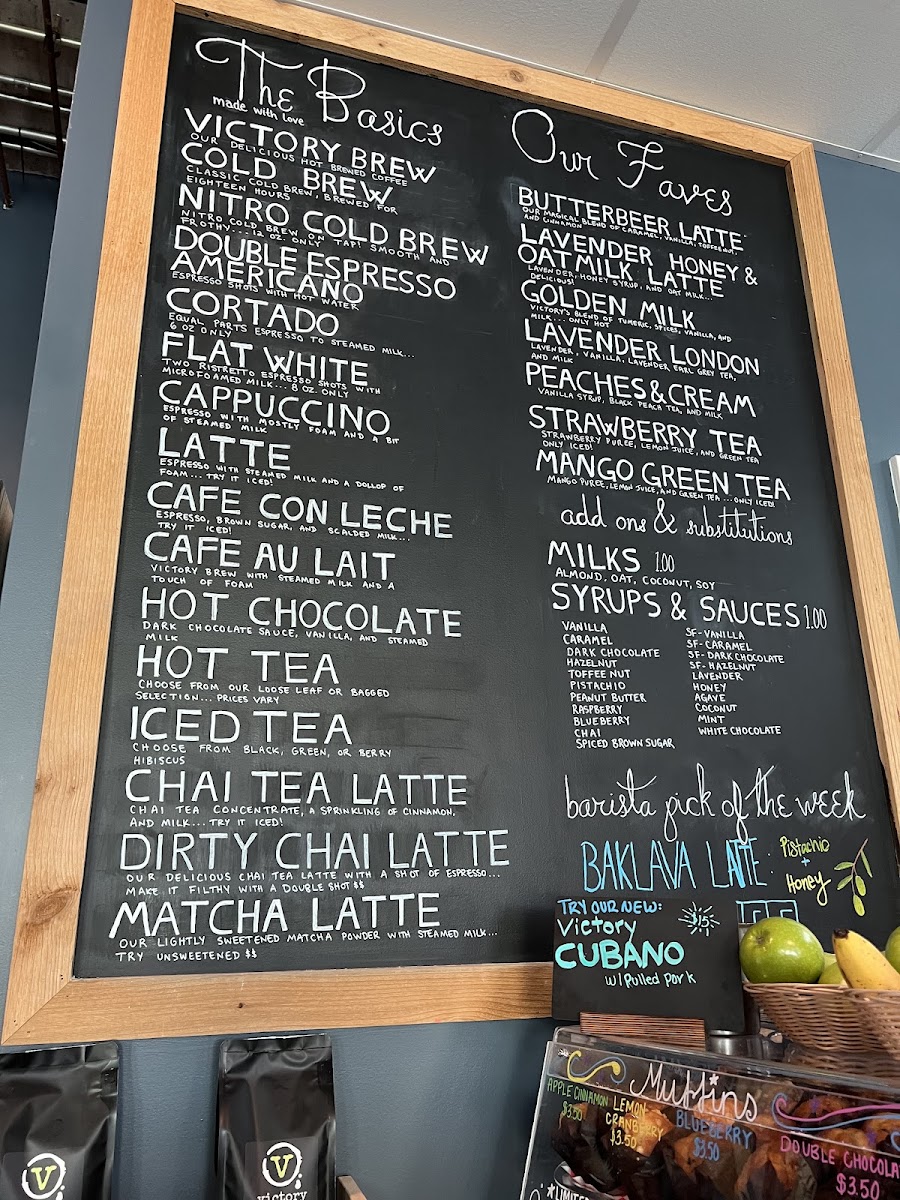 The Basics
made with love
VICTORY BREW
OUR DELICIOUS HOT BREWED COFFEE
COLD BREW
CLASSIC COLD BREW, BREWED FOR
EIGHTEEN HOURS
NITRO COLD BREW
NITRO COLD BREW ON TAP! SMOOTH AND
FROTHY... 12 OZ. ONLY
DOUBLE ESPRESSO
AMERICANO
ESPRESSO SHOTS WITH HOT WATER
CORTADO
EQUAL PARTS ESPRESSO TO STEAMED MILK...
6 OZ ONLY
FLAT WHITE
TWO RISTRETTO ESPRESSO SHOTS WITH
MICROFOAMED MILK... 8 OZ. ONLY
CAPPUCCINO
ESPRESSO WITH MOSTLY FOAM AND A BIT
OF STEAMED MILK
LATTE
ESPRESSO WITH STEAMED MILK AND A DOLLOP OF
FOAM... TRY IT ICED!
CAFE CON LECHE
ESPRESSO, BROWN SUGAR, AND SCALDED MILK...
TRY IT ICED!
CAFE AU LAIT
VICTORY BREW WITH STEAMED MILK AND A
TOUCH OF FOAM
HOT CHOCOLATE
DARK CHOCOLATE SAUCE, VANILLA, AND STEAMED
MILK
HOT TEA
CHOOSE FROM OUR LOOSE LEAF OR BAGGED
SELECTION... PRICES VARY
ICED TEA
CHOOSE FROM BLACK, GREEN, OR BERRY
HIBISCUS
CHAI TEA LATTE
CHAI TEA CONCENTRATE, A SPRINKLING OF CINNAMON,
AND MILK... TRY IT ICED!
DIRTY CHAI LATTE
OUR DELICIOUS CHAI TEA LATTE WITH A SHOT OF ESPRESSO...
MAKE IT FILTHY WITH A DOUBLE SHOT $$
MATCHA LATTE
OUR LIGHTLY SWEETENED MATCHA POWDER WITH STEAMED MILK...
TRY UNSWEETENED $$
Our Faves
BUTTERBEER LATTE
OUR MAGICAL BLEND OF CARAMEL, VANILLA, TOFFEE NUT,
AND CINNAMON
LAVENDER HONEY &
OATMILK LATTE
LAVENDER, HONEY SYRUP, AND OAT MILK...
DELICIOUS!
GOLDEN MILK
VICTORY'S BLEND OF TUMERIC, SPICES, VANILLA, AND
MILK... ONLY HOT
LAVENDER LONDON
LAVENDER, VANILLA, LAVENDER EARL GREY TEA,
AND MILK
PEACHES & CREAM
VANILLA SYRUP, BLACK PEACH TEA, AND MILK
STRAWBERRY TEA
STRAWBERRY PUREE, LEMON JUICE, AND GREEN TEA
ONLY ICED!
MANGO GREEN TEA
MANGO PUREE, LEMON JUICE, AND GREEN TEA... ONLY ICED!
add ons & substitutions
MILKS 1.00
ALMOND, OAT, COCONUT, SOY
SYRUPS & SAUCES 1.00
VANILLA
CARAMEL
DARK CHOCOLATE
HAZELNUT
TOFFEE NUT
PISTACHIO
PEANUT BUTTER
RASPBERRY
BLUEBERRY
CHAI
SPICED BROWN SUGAR
SF-VANILLA
SF-CARAMEL
SF-DARK CHOCOLATE
SF-HAZELNUT
LAVENDER
HONEY
AGAVE
COCONUT
MINT
WHITE CHOCOLATE
barista pick of the week
BAKLAVA LATTE
Pistachio
+
Honey
TRY OUR NEW:
Victory
$15
CUBANO
w/ Pulled Pork
Muffins
APPLE CINNAMON
$3.50
LEMON
CRANBERRY
$3.50
BLUEBERRY
$3.50
DOUBLE CHOCOLA
$3.50
V
V
Victory